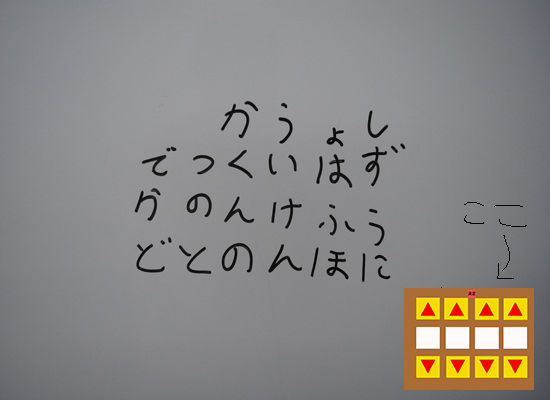 かうょし
でつくいはず
かのんけふう
どとのんほに
ここ